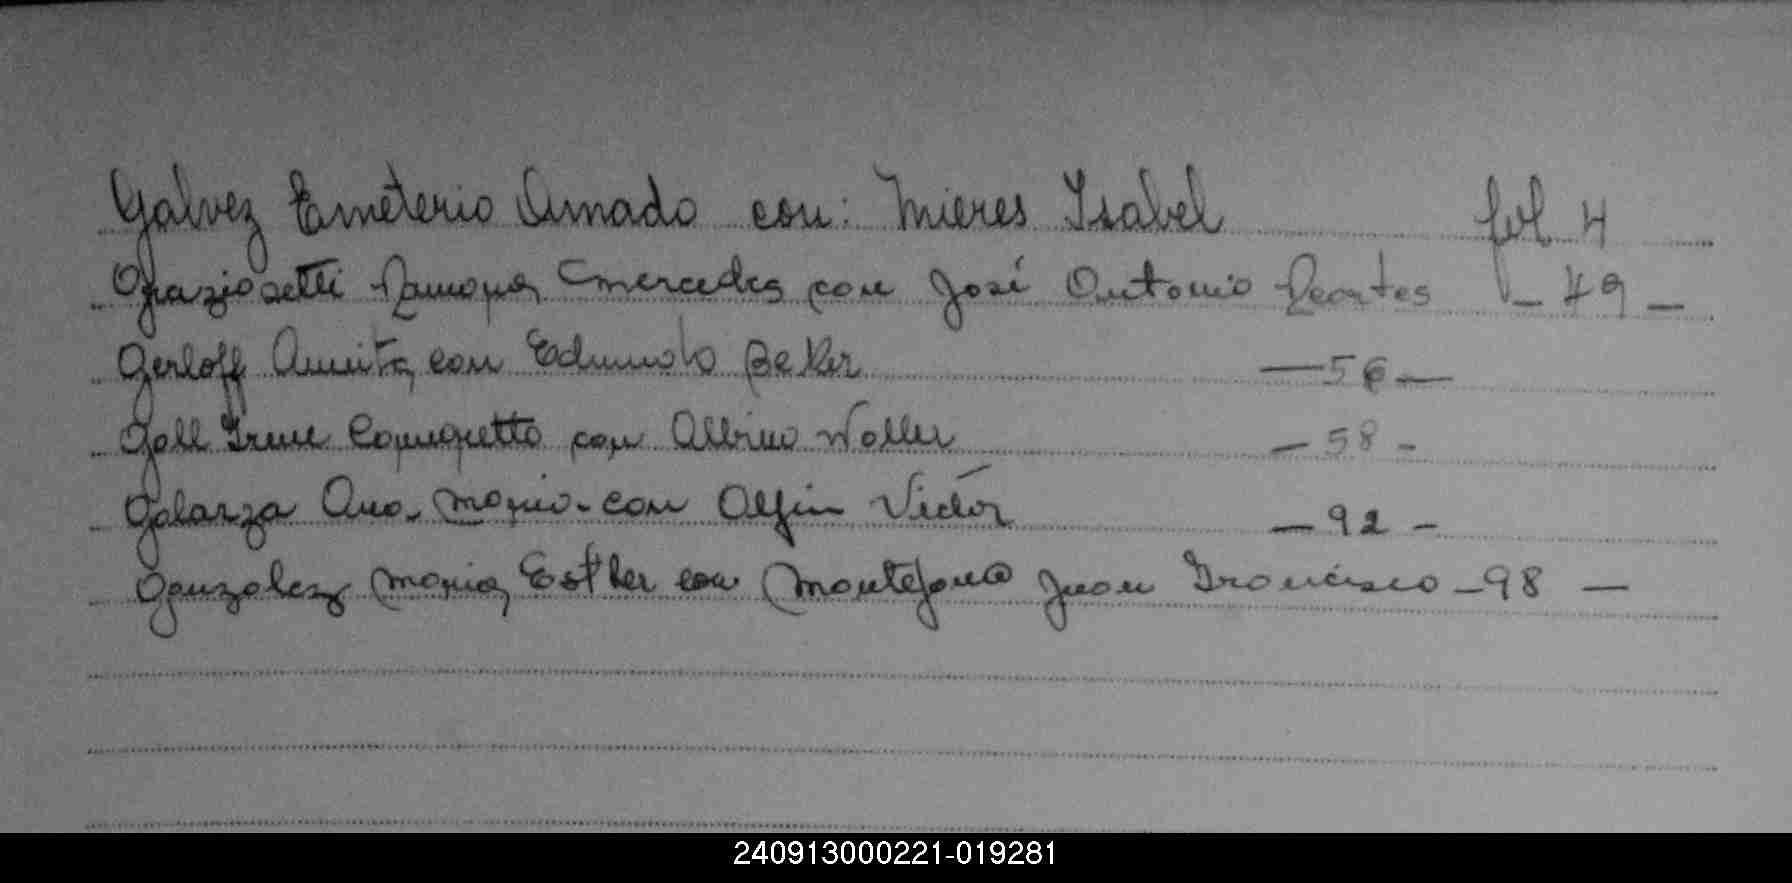 Galvez Emeterio Amado con: Mieres Isabel fol 4
Graziosetti Ramona Mercedes con José Antonio 49 -
Gerloff Anita con Edmundo Beker - 56 -
Goll Irene Enriquetta con Albino Woller - 58 -
Galarza Ana. Maria. con Alfin Victór - 92 -
Gonzalez Maria Esther con Juan Francisco - 98 -
240913000221-019281